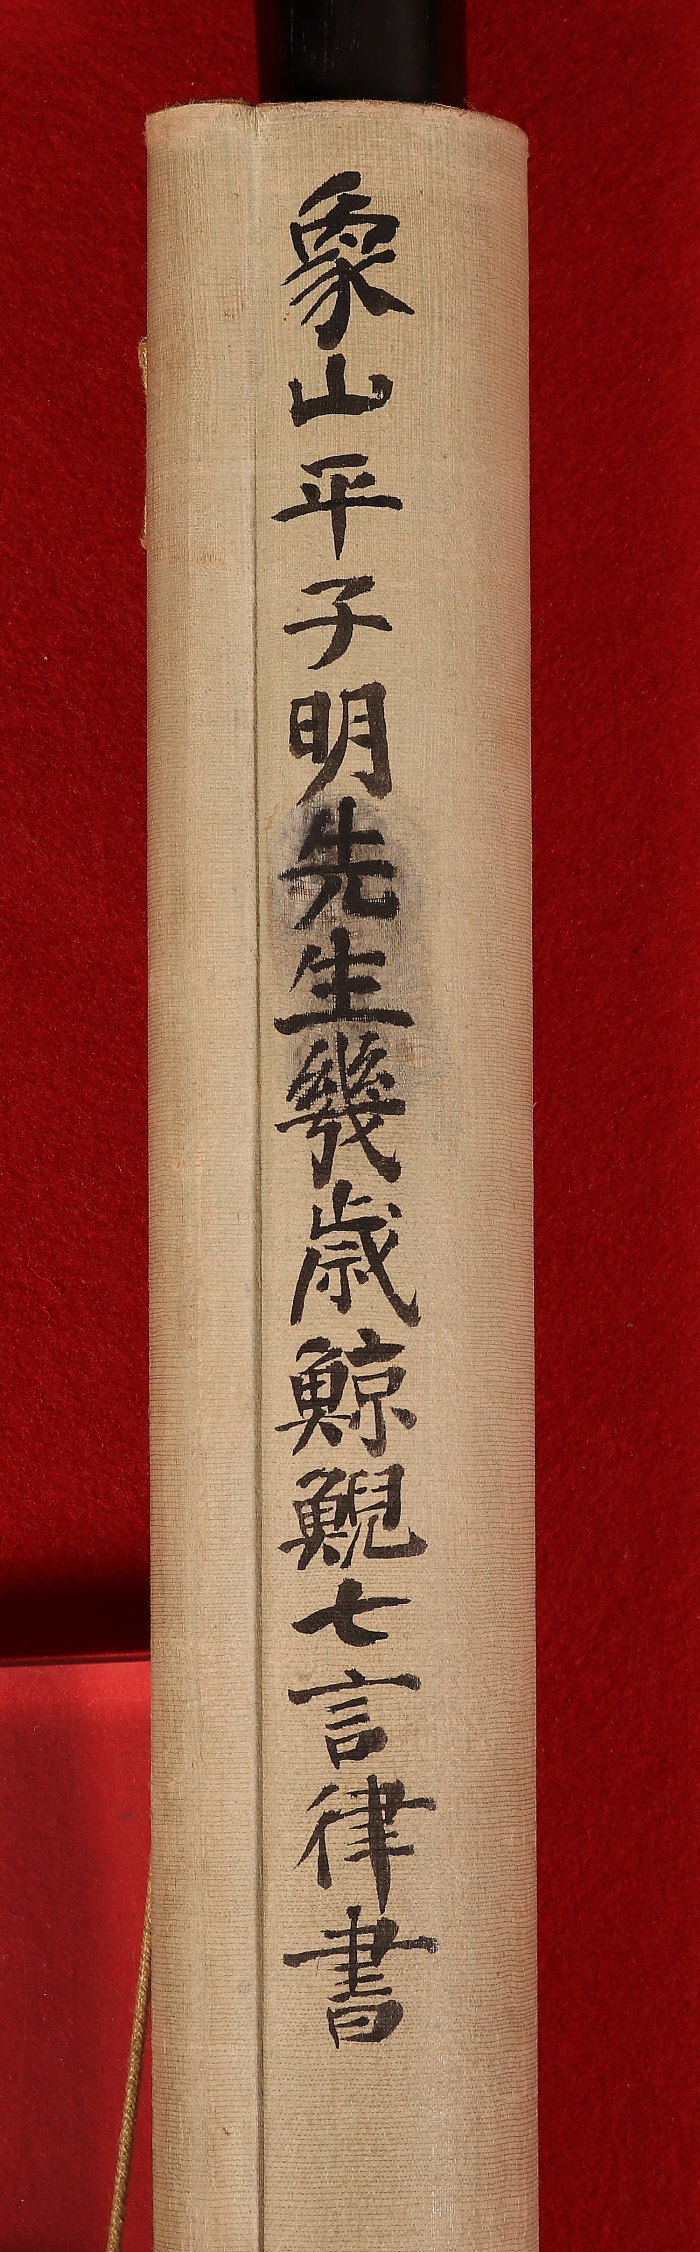 象山平子明先生幾歳鯨鯢七言律書